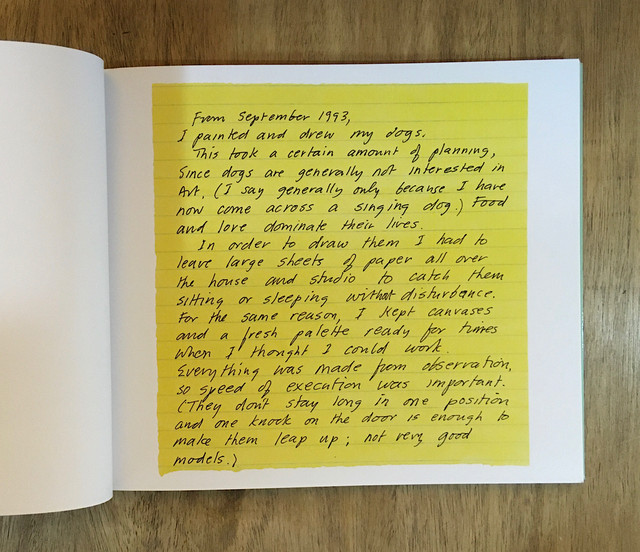 From September 1993,
I painted and drew my dogs.
This took a certain amount of planning,
since dogs are generally not interested in
Art. (I say generally only because I have
now come across a singing dog.) Food
and love dominate their lives.
In order to draw them I had to
leave large sheets of paper all over
the house and studio to catch them
sitting or sleeping without disturbance.
For the same reason, I kept canvases
and a fresh palette ready for times
when I thought I could work.
Everything was made from observation,
so speed of execution was important.
(They don't stay long in one position
and one knock on the door is enough to
make them leap up; not very good
models.)